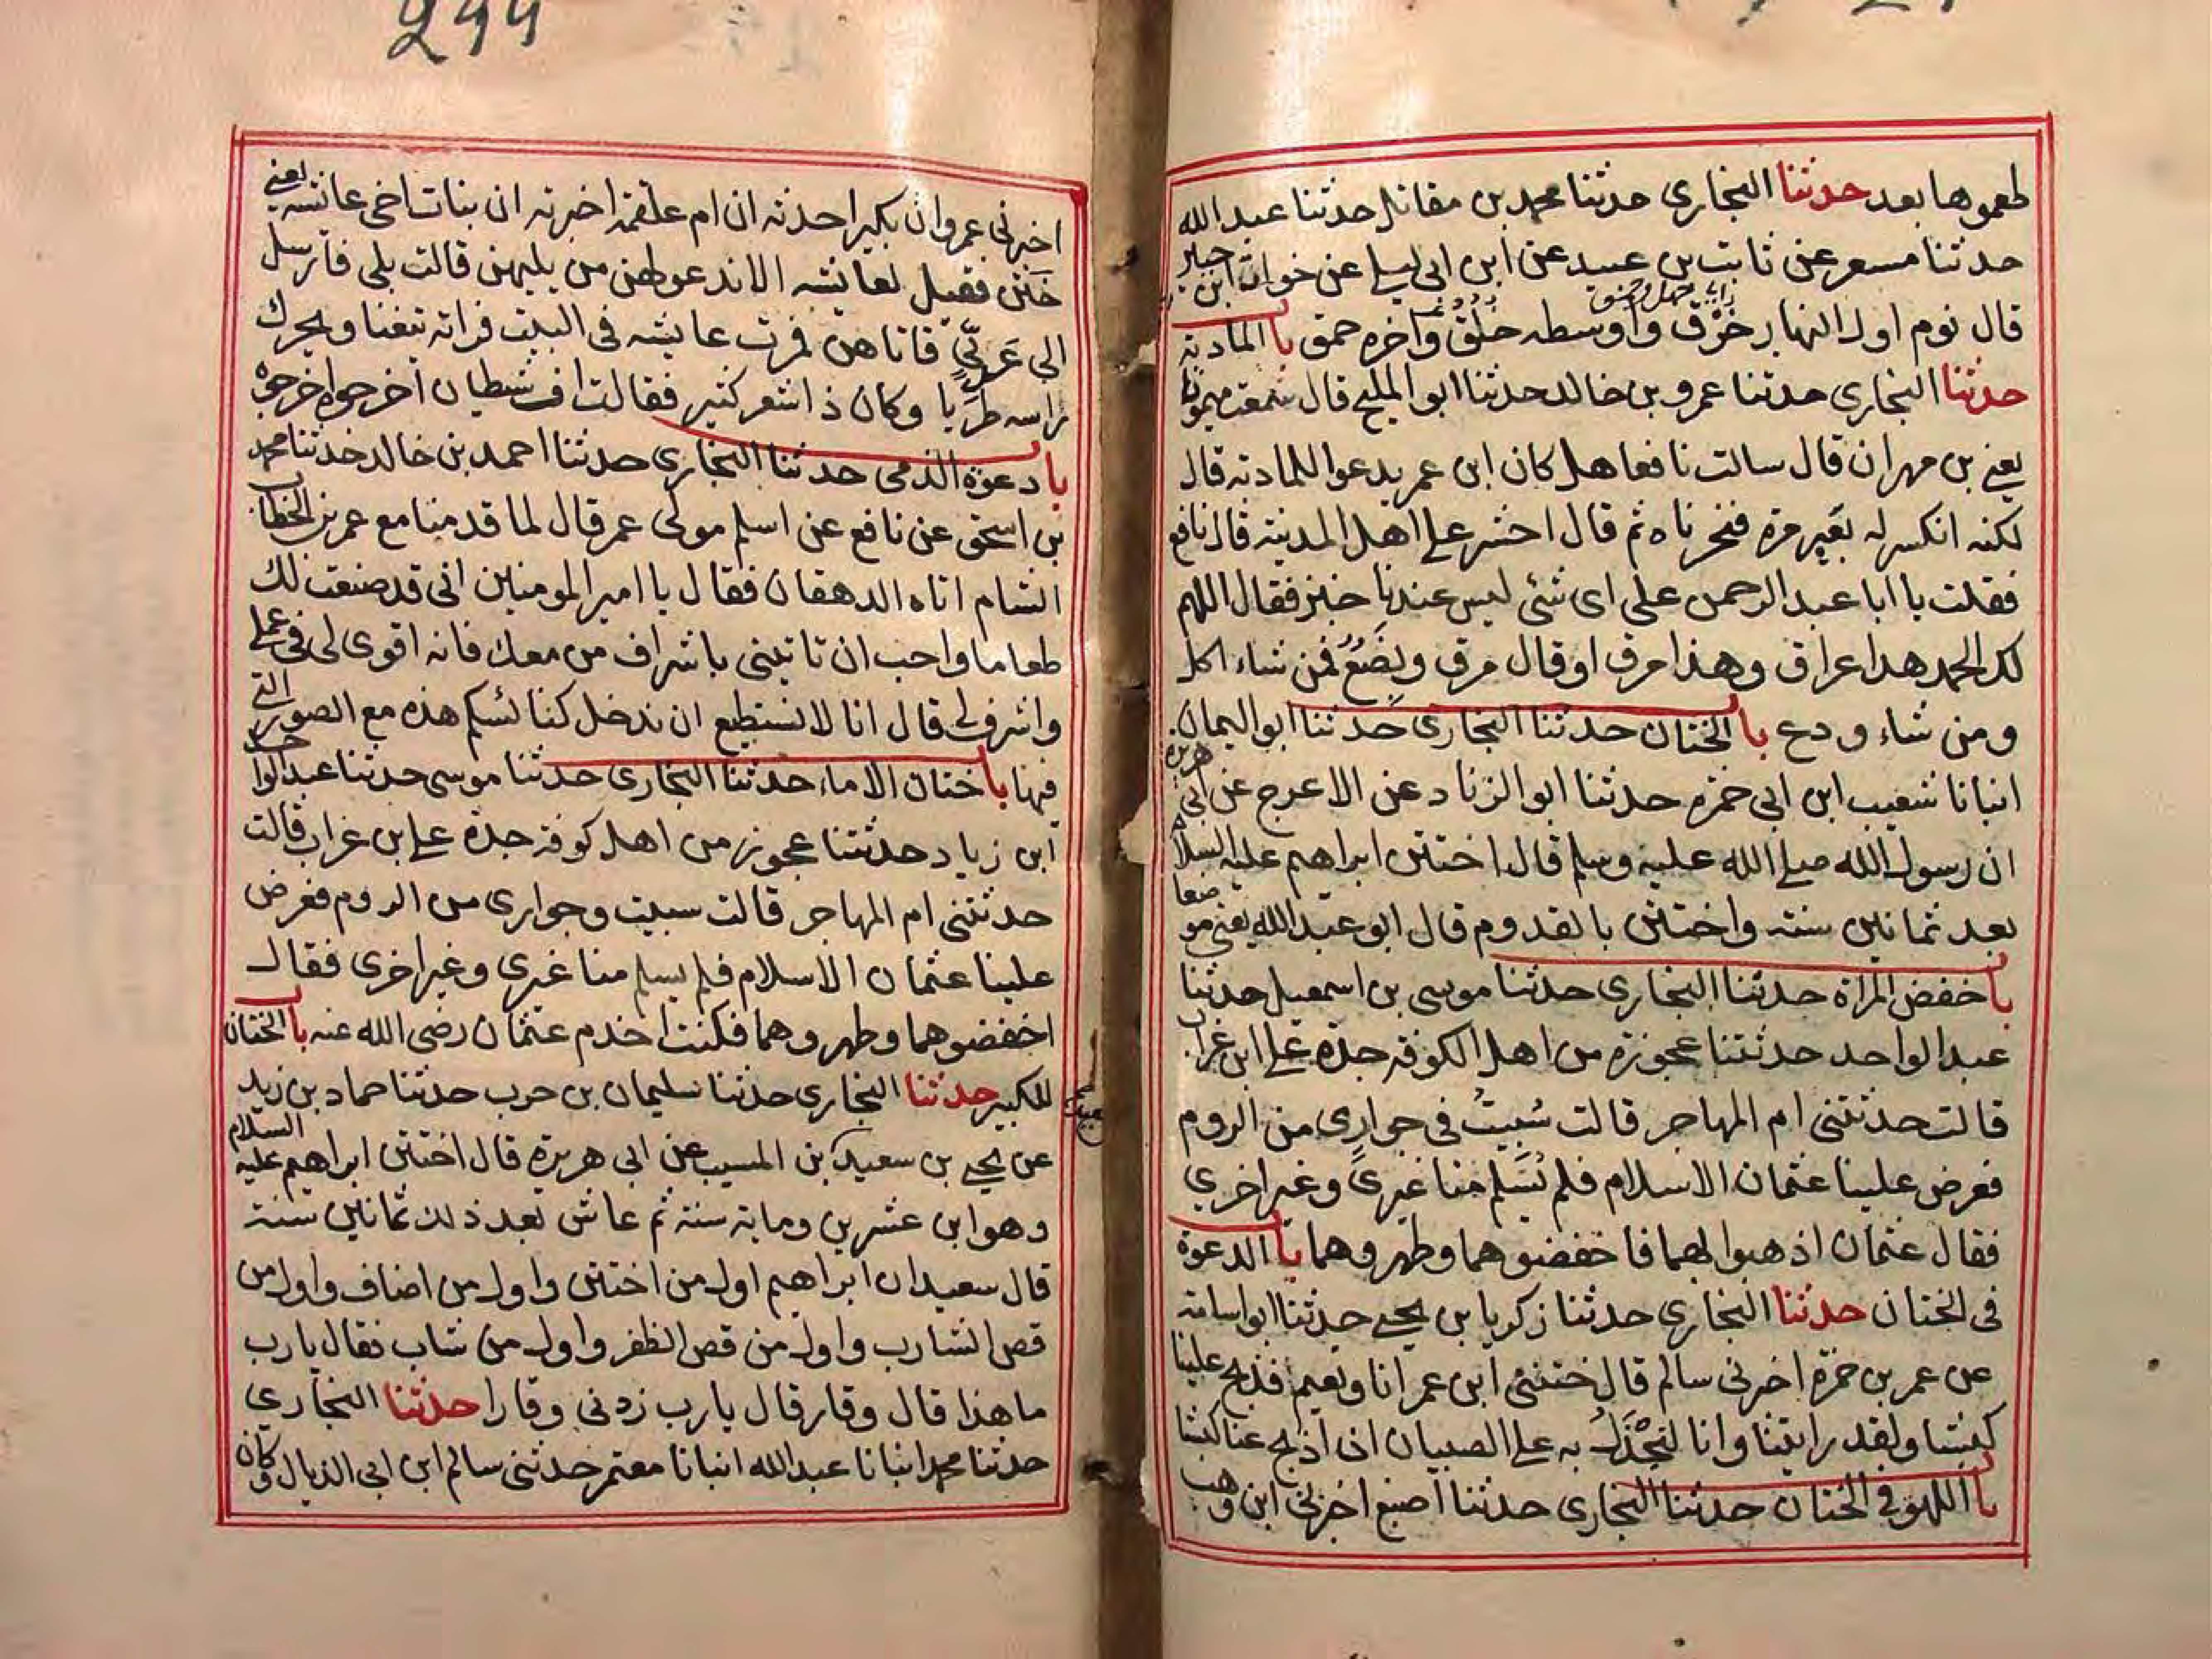 طعموها بعد حدثنا البخاري حدثنا محمد بن مقاتل حدثنا عبد الله
حدثنا مسعر عن ثابت بن عبيد عن ابن ابي ليلى عن خوات ابن جبير
قال نوم اول النهار خرق واوسطه خلق واخره حمق باب المادبة
حدثنا البخاري حدثنا عمرو بن خالد حدثنا ابو المليح قال سمعت ميمونا
يعني بن مهران قال سالت نافعا هل كان ابن عمر يدعوا للمادبة قال
لكنه انكسر له بعير مرة فنحرناه ثم قال احشر علي اهل المدينة قال نافع
فقلت يا ابا عبد الرحمن على اى شئى ليس عندنا خبز فقال اللهم
لك الحمد هذا عراق وهذا مرق او قال مرق وبضع فمن شاء اكل
ومن شاء ودع باب الختان حدثنا البخاري حدثنا ابو اليمان
انبانا شعيب ابن ابي حمزه حدثنا ابو الزناد عن الاعرج عن ابي هريرة
ان رسول الله صلى الله عليه وسلم قال اختتن ابراهيم عليه السلام
بعد ثمانين سنة واختتن بالقدوم قال ابو عبد الله يعني موضعا
باب خفض المراة حدثنا البخاري حدثنا موسى بن اسمعيل حدثنا
عبد الواحد حدثتنا عجوزة من اهل الكوفة جدة علي ابن غراب
قالت حدثتني ام المهاجر قالت سبيت في جواري من الروم
فعرض علينا عثمان الاسلام فلم يسلم منا غيرى وغير اخري
فقال عثمان اذهبوا لهما فاخفضوهما وطهروهما باب الدعوة
فى الختان حدثنا البخاري حدثنا زكريا بن يحيى حدثنا ابو اسامة
عن عمر بن حمزة اخبرنى سالم قال ختنني ابن عمر انا ونعيم فذبح علينا
كبشا ولقد رايتنا وانا لنجذل به علي الصبيان ان اذبح عنا كبشا
باب اللهو في الختان حدثنا البخاري حدثنا اصبغ اخبرني ابن وهب
299
اخبرني عمرو ان بكيرا حدثه ان ام علقمة اخبرته ان بنات اخى عائشه يعني
ختن فقيل لعائشه الا ندعو لهن من يلهيهن قالت بلى فارسل
الى عربي فاتاهن فمرت عايشه فى البيت فراته يتغنا ويحرك
راسه طربا وكان ذا شعر كثير فقالت اف شيطان اخرجوه اخرجوه
باب دعوة الذمى حدثنا البخاري حدثنا احمد بن خالد حدثنا محمد
بن اسحق عن نافع عن اسلم مولى عمر قال لما قدمنا مع عمر بن الخطاب
الشام اتاه الدهقان فقال يا امير المومنين انى قد صنعت لك
طعاما واحب ان تاتيني باشراف من معك فانه اقوى لى فى عملي
واشرف لي قال انا لا نستطيع ان ندخل كنائسكم هذه مع الصور التي
فيها باب ختان الاماء حدثنا البخاري حدثنا موسى حدثنا عبد الواحد
ابن زياد حدثتنا عجوز من اهل كوفة جدة علي ابن غراب قالت
حدثتني ام المهاجر قالت سبيت وجوارى من الروم فعرض
علينا عثمان الاسلام فلم يسلم منا غيرى وغير اخرى فقال
اخفضوهما وطهروهما فكنت اخدم عثمان رضى الله عنه باب الختان
للكبير حدثنا البخاري حدثنا سليمان بن حرب حدثنا حماد بن زيد
عن يحيى بن سعيد بن المسيب عن ابى هريرة قال اختتن ابراهيم عليه السلام
وهو ابن عشرين وماية سنة ثم عاش بعد ذلك ثمانين سنة
قال سعيد ان ابراهيم اول من اختتن واول من اضاف واول من
قص الشارب واول من قص الظفر واول من شاب فقال يارب
ما هذا قال وقار قال يارب زدنى وقارا حدثنا البخاري
حدثنا محمد انبانا عبد الله انبانا معتمر حدثنى سالم ابن ابى الذيال وكان